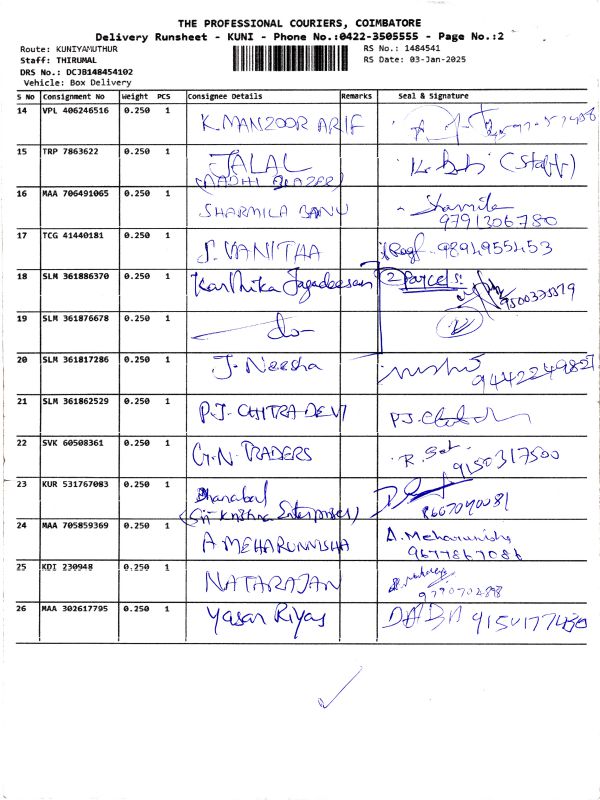 THE PROFESSIONAL COURIERS, COIMBATORE
Delivery Runsheet - KUNI - Phone No.:0422-3505555 - Page No.:2
Route: KUNIYAMUTHUR RS No.: 1484541
Staff: THIRUMAL RS Date: 03-Jan-2025
DRS No.: DCJB148454102
Vehicle: Box Delivery
S No Consignment No Weight PCS Consignee Details Remarks Seal & Signature
14 VPL 406246516 0.250 1 K.MANZOOR ARIF
15 TRP 7863622 0.250 1 JALAL (Staff)
(AADHI BLAZER)
16 MAA 706491065 0.250 1 SHARMILA BANU Sharmila
9791306780
17 TCG 41440181 0.250 1 S.VANITHA 9894955453
18 SLM 361886370 0.250 1 Karthika Jagadeesan 2 Parcels:
9500335519
19 SLM 361876678 0.250 1 -do- 2
20 SLM 361817286 0.250 1 J. Neesha 9442249827
21 SLM 361862529 0.250 1 P.J. CHITRA DEVI P.J.
22 SVK 60508361 0.250 1 G.N. TRADERS R.
9150317500
23 KUR 531767083 0.250 1 Dhanabal
(Sri Krishna Enterprises) 8667040081
24 MAA 705859369 0.250 1 A MEHARUNNISHA A. Meharunisha
9677867086
25 KDI 230948 0.250 1 NATARAJAN
9790702898
26 MAA 302617795 0.250 1 Yasar Riyas